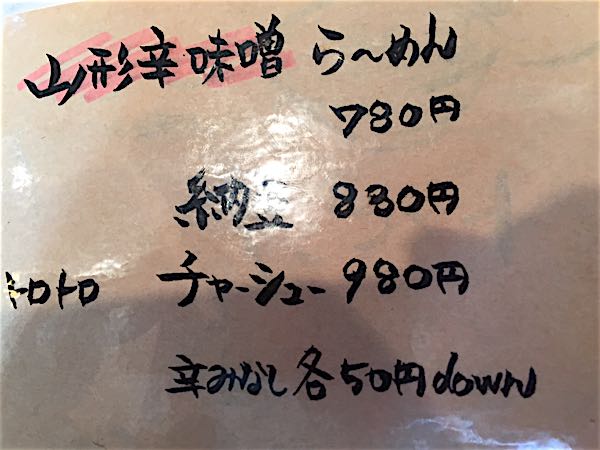 山形辛味噌 らーめん
780円
納豆 830円
トロトロ チャーシュー 980円
辛みなし各50円down